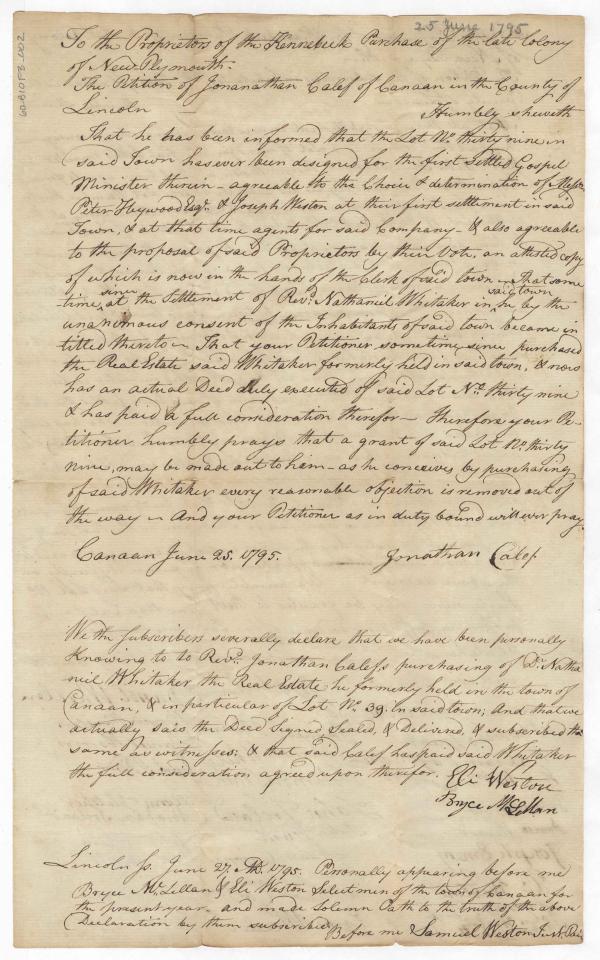 25 June 1795
60-B10F3-002
To the Proprietors of the Kennebeck Purchase of the late Colony
of New Plymouth.
The Petition of Jonanathan Calef of Canaan in the County of
Lincoln — Humbly sheweth
That he has been informed that the Lot No. thirty nine in
said Town has ever been designed for the first Settled Gospel
Minister therein — agreable to the Choice & determination of Messrs.
Peter Heywood Esqr. & Joseph Weston at their first settlement in said
Town, & at that time agents for said Company — & also agreeable
to the proposal of said Proprietors by their Vote, an attested copy
of which is now in the hands of the Clerk of said town — That some
time since at the Settlement of Revd. Nathaniel Whitaker in said town he by the
unanimous consent of the Inhabitants of said town became in
titled thereto — That your Petitioner sometime since purchased
the Real Estate said Whitaker formerly held in said town, & now
has an actual Deed duly executed of said Lot No. thirty nine
& has paid a full consideration therefor — Therefore your Pe-
titioner humbly prays that a grant of said Lot No. thirty
nine, may be made out to him — as he conceives by purchasing
of said Whitaker every reasonable objection is removed out of
the way — And your Petitioner as in duty bound will ever pray.
Canaan June 25. 1795. Jonathan Calef
We the subscribers severally declare that we have been personally
Knowing to to Revd. Jonathan Calef's purchasing of Dr. Natha
niel Whitaker the Real Estate he formerly held in the town of
Canaan, & in particular of Lot No. 39. in said town; And that we
actually saw the Deed Signed Sealed, & Delivered, & subscribed the
same as witnesses: & that said Calef has paid said Whitaker
the full consideration agreed upon therefor. Eli Weston
Bryce McLellan
Lincoln ss. June 27. 1795. Personally appearing before me
Bryce McLellan & Eli Weston Select men of the town of Canaan for
the present year — and made solemn Oath to the truth of the above
Declaration by them subscribed
Before me Samuel Weston Jus. Pais